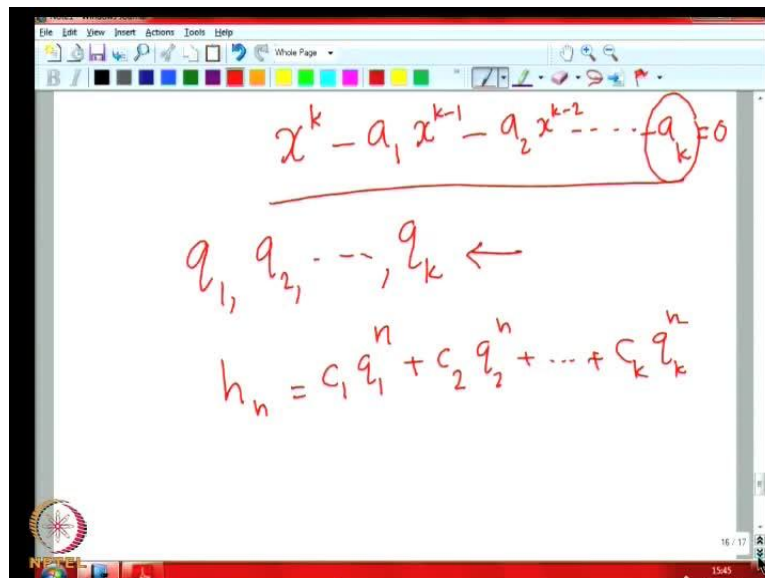 File Edit View Insert Actions Tools Help
Whole Page
B I
x^k - a_1 x^{k-1} - a_2 x^{k-2} ----- a_k = 0
q_1, q_2, ---, q_k ←
h_n = c_1 q_1^n + c_2 q_2^n + ... + c_k q_k^n
16 / 17
NPTEL
15:45